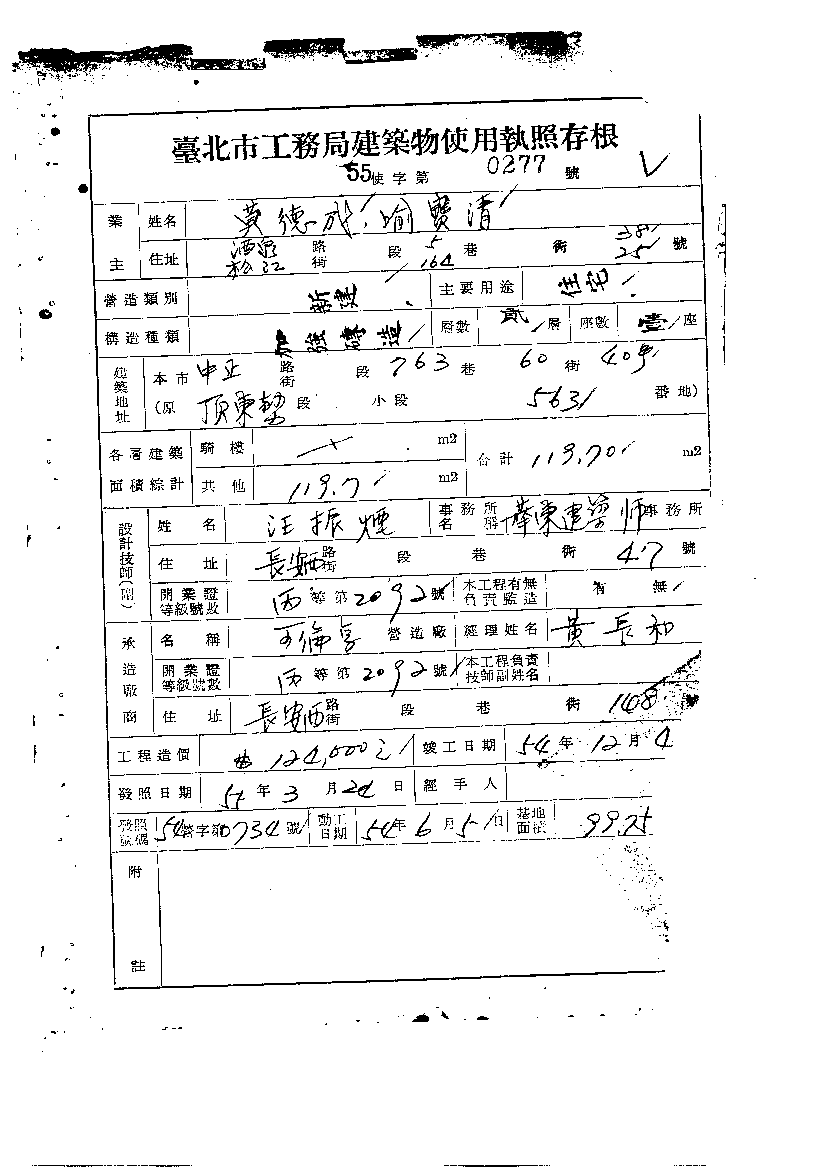 臺北市工務局建築物使用執照存根
55使字第 0277 號
業主 姓名 黃德成 喻寶清
住址 酒泉 松江 路街 段 5 164 巷 街 38 25 號
營造類別 新建 主要用途 住宅
構造種類 加強磚造 層數 貳層 座數 壹座
建築地址 本市 中正 路街 段 763 巷 60 街 40号
(原 頂東勢 段 小段 563 番地)
各層建築面積綜計 騎樓 m2 合計 119.70 m2
其他 119.7 m2
設計技師(團) 姓名 汪振煙 事務所名稱 華東建築師事務所
住址 長安西路街 段 巷 街 47 號
開業證等級號數 丙等第2092號 本工程有無負責監造 有 無
承造廠商 名稱 營造廠 經理姓名 黃長和
開業證等級號數 丙等第2092號 本工程負責技師副姓名
住址 長安西路街 段 巷 街 148
工程造價 124,000元 竣工日期 54年12月4
發照日期 年3月24日 經手人
發照號碼 54營字第0734號 動工日期 54年6月5日 基地面積 99.75
附註